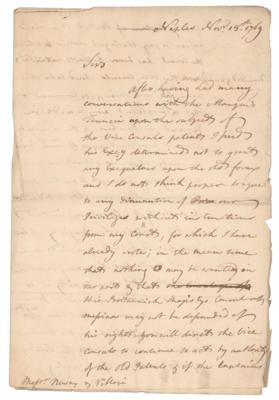 Naples Nov.r 18.th 1769
Sir
After having had many
conversations with the Marquis
Tanucci upon the subject of
the Vice Consuls patents I find
his Excy determined not to grant
any Exequaturs upon the old form
and I do not think proper to agree
to any diminution of our
Privileges without instructions
from my Court, for which I have
already wrote; in the mean time
that nothing may be wanting on
our part & that
His Britannick Majestys Consul at
Messina may not be defrauded of
his rights you will direct the Vice
Consuls to continue to act by authority
of the old Patents & if the
Mess.rs